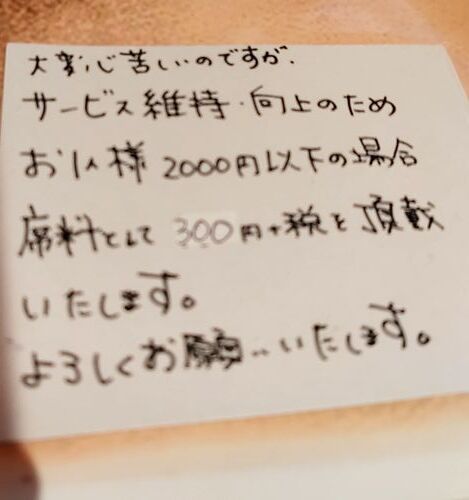 大変心苦しいのですが、
サービス維持・向上のため
お1人様 2000円以下の場合
席料として 300円+税を頂戴
いたします。
よろしくお願いいたします。